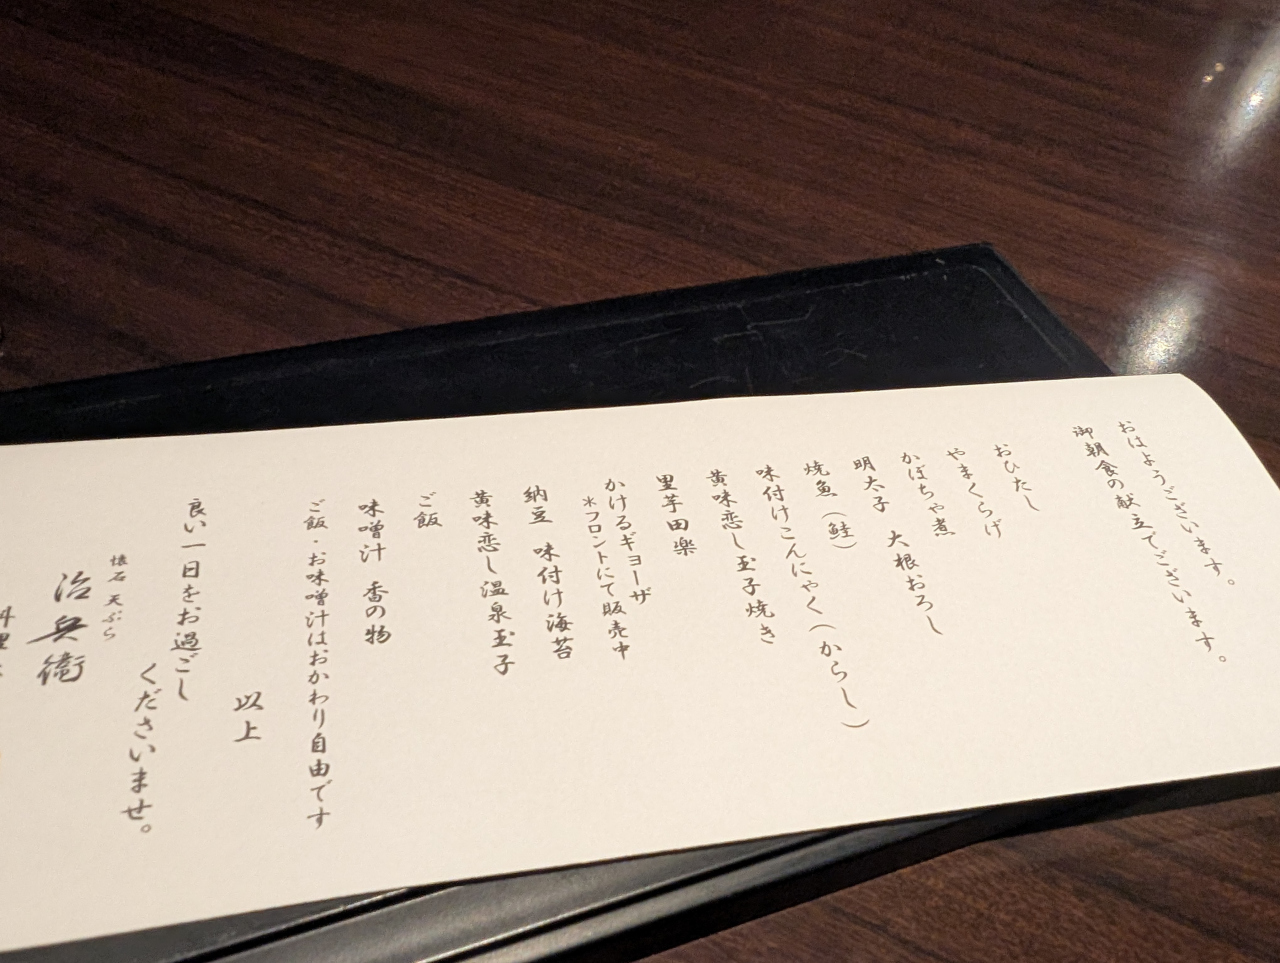 おはようございます。
御朝食の献立でございます。
おひたし
やまくらげ
かぼちゃ煮
明太子　大根おろし
焼魚（鮭）
味付けこんにゃく（からし）
黄味恋し玉子焼き
里芋田楽
かけるギョーザ
＊フロントにて販売中
納豆　味付け海苔
黄味恋し温泉玉子
ご飯
味噌汁　香の物
ご飯・お味噌汁はおかわり自由です
以上
良い一日をお過ごし
くださいませ。
懐石 天ぷら
治兵衛
料理